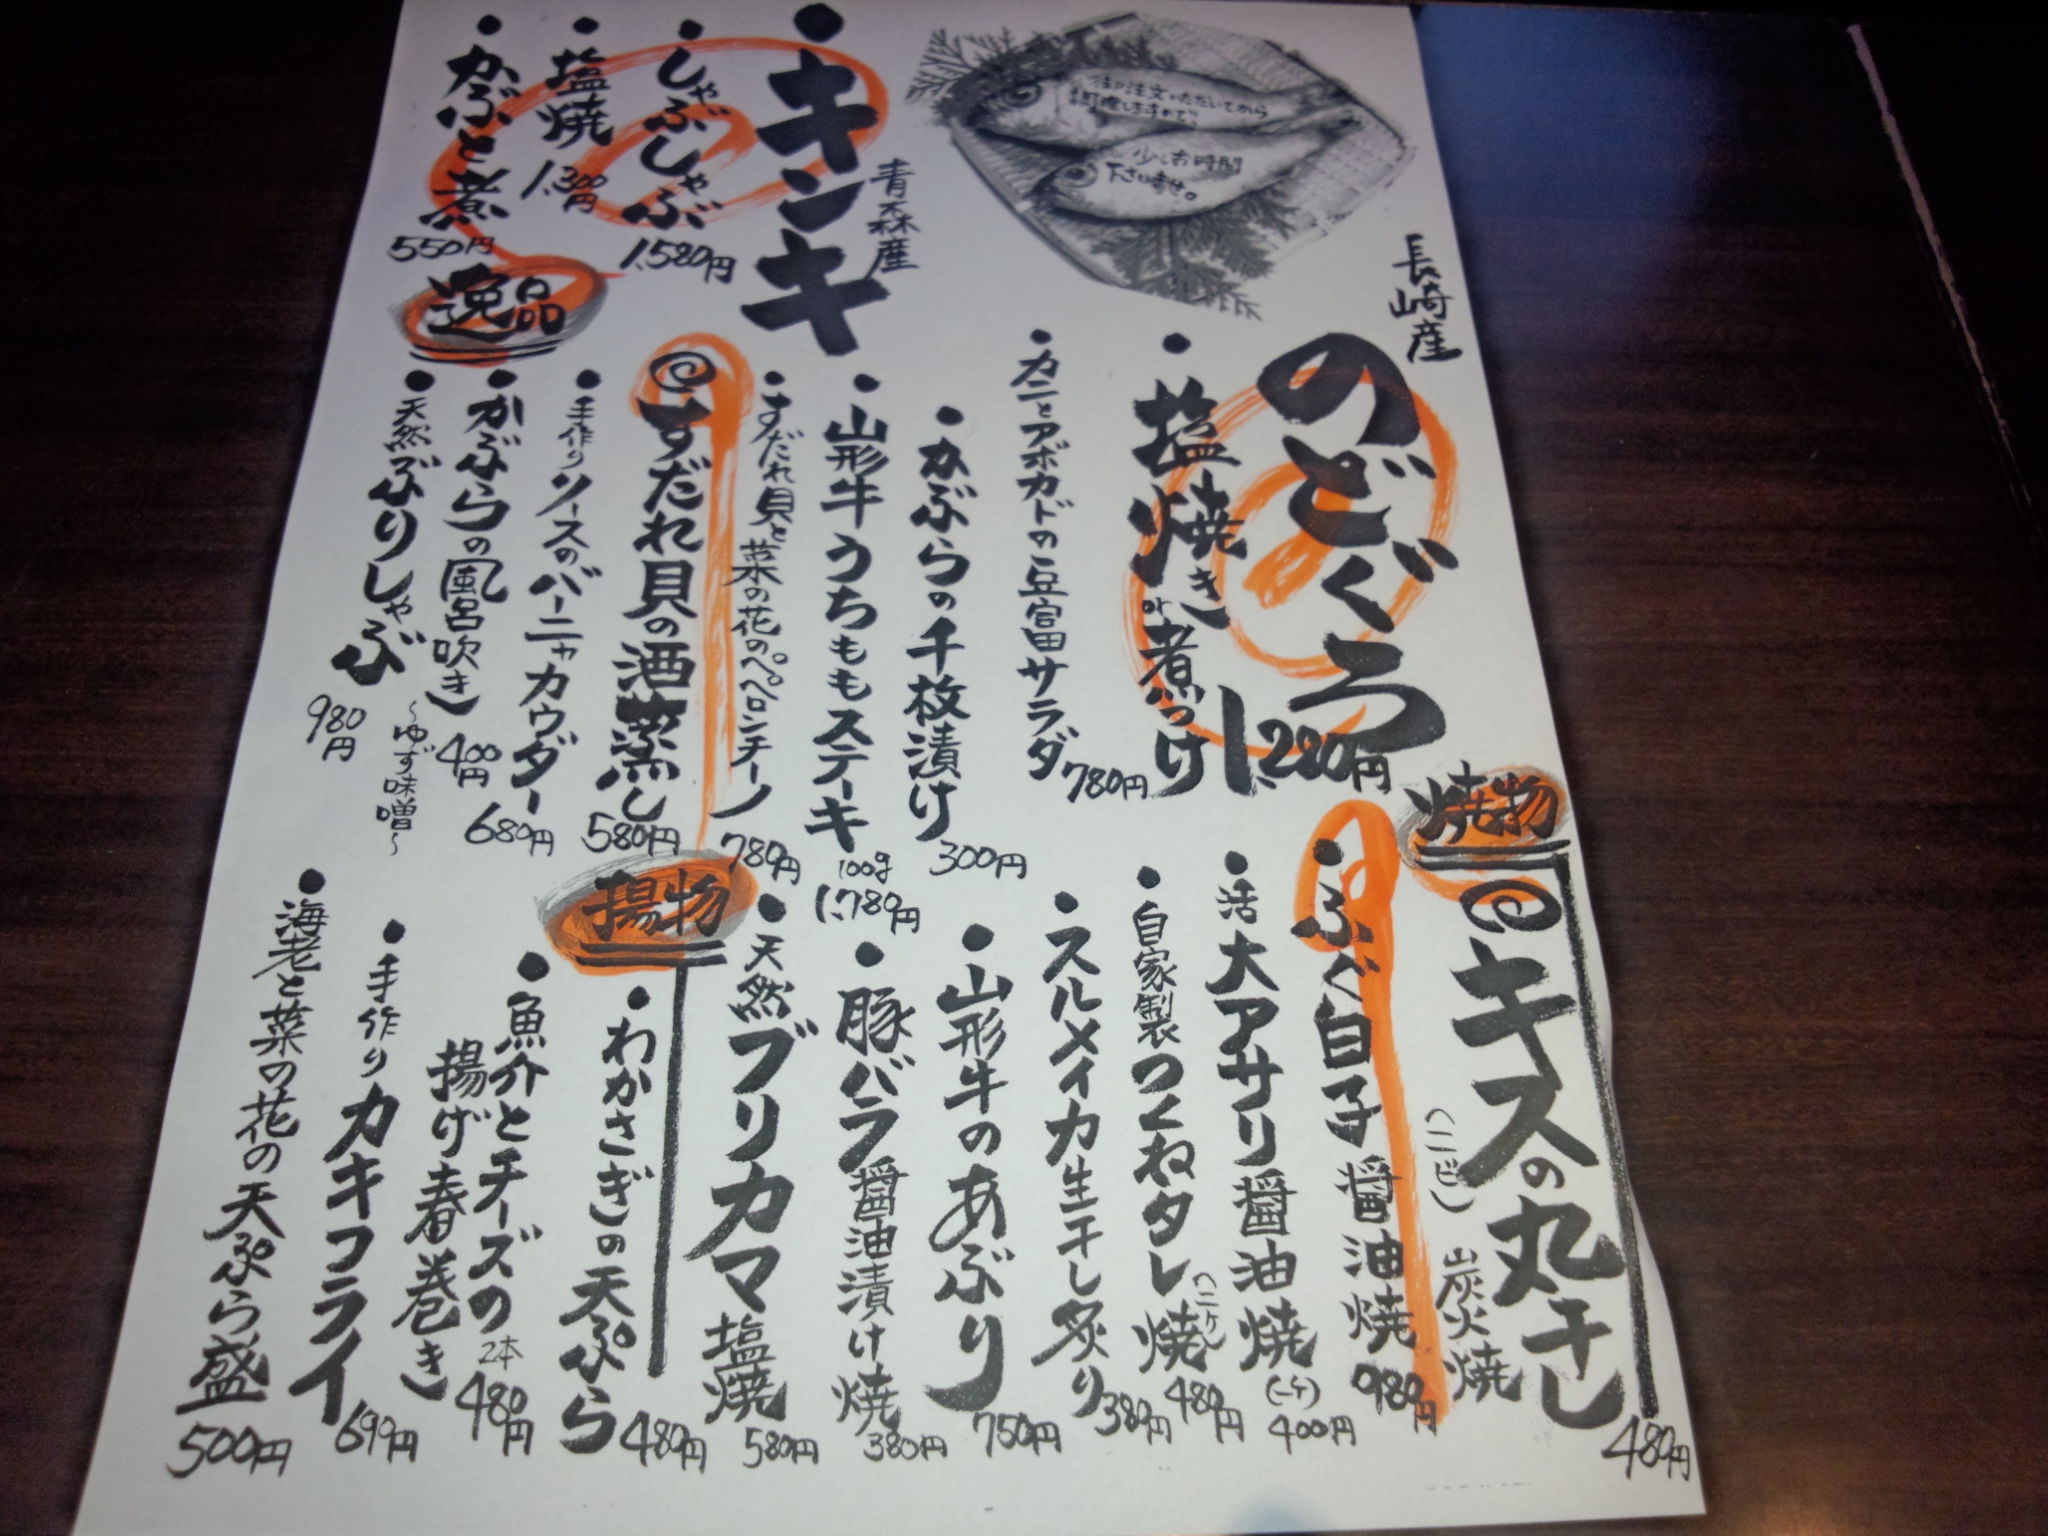 御注文いただいてから
調理しますので、
少しお時間
下さい幸せ。
長崎産
のどぐろ
・塩焼き or 煮つけ 1,280円
・カニとアボカドの豆富サラダ 780円
・かぶらの千枚漬け 300円
・山形牛うちももステーキ 100g 1,780円
・すだれ貝と菜の花のペペロンチーノ 780円
すだれ貝の酒蒸し 580円
・手作りソースのバーニャカウダー 680円
・かぶらの風呂吹き 400円
～ゆず味噌～
・天然ぶりしゃぶ 980円
青森産
・キンキ
・しゃぶしゃぶ 1,580円
・塩焼 1,300円
・かぶと煮 550円
逸品
焼物
キスの丸干し(二ビ) 炭火焼 480円
・ふぐ白子醤油焼 980円
・活大アサリ醤油焼(一ケ) 400円
・自家製つくねタレ焼(二ケ) 480円
・スルメイカ生干し炙り 380円
・山形牛のあぶり 750円
・豚バラ醤油漬け焼 380円
・天然ブリカマ塩焼 580円
揚物
・わかさぎの天ぷら 480円
・魚介とチーズの
揚げ春巻き 2本 480円
・手作りカキフライ 699円
・海老と菜の花の天ぷら盛 500円